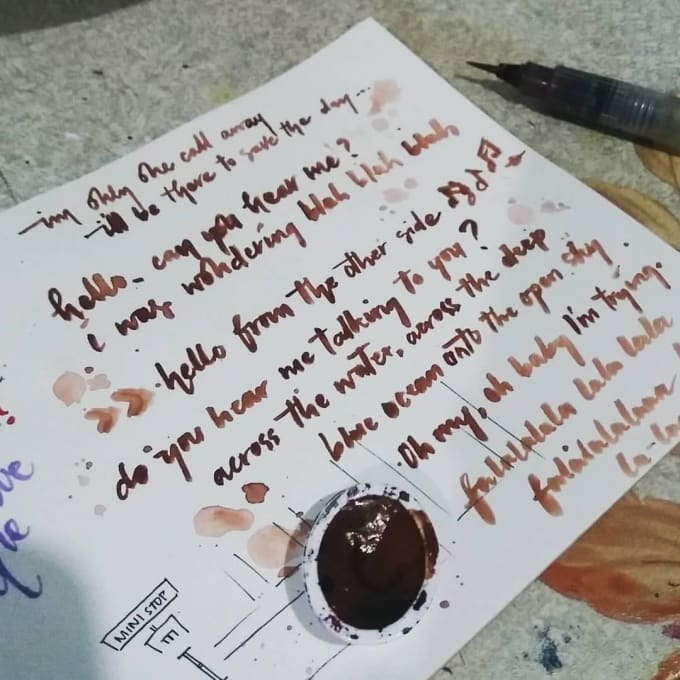 -im only one call away
-ill be there to save the day...
hello - can you hear me?
I was wondering blah blah blah
.hello from the other side
do you hear me talking to you?
across the water, across the deep
blue ocean onto the open sky
.Oh my, oh baby I'm trying.
falalalala lala lalaa
faladalalalaaa
la-la
MINISTOP